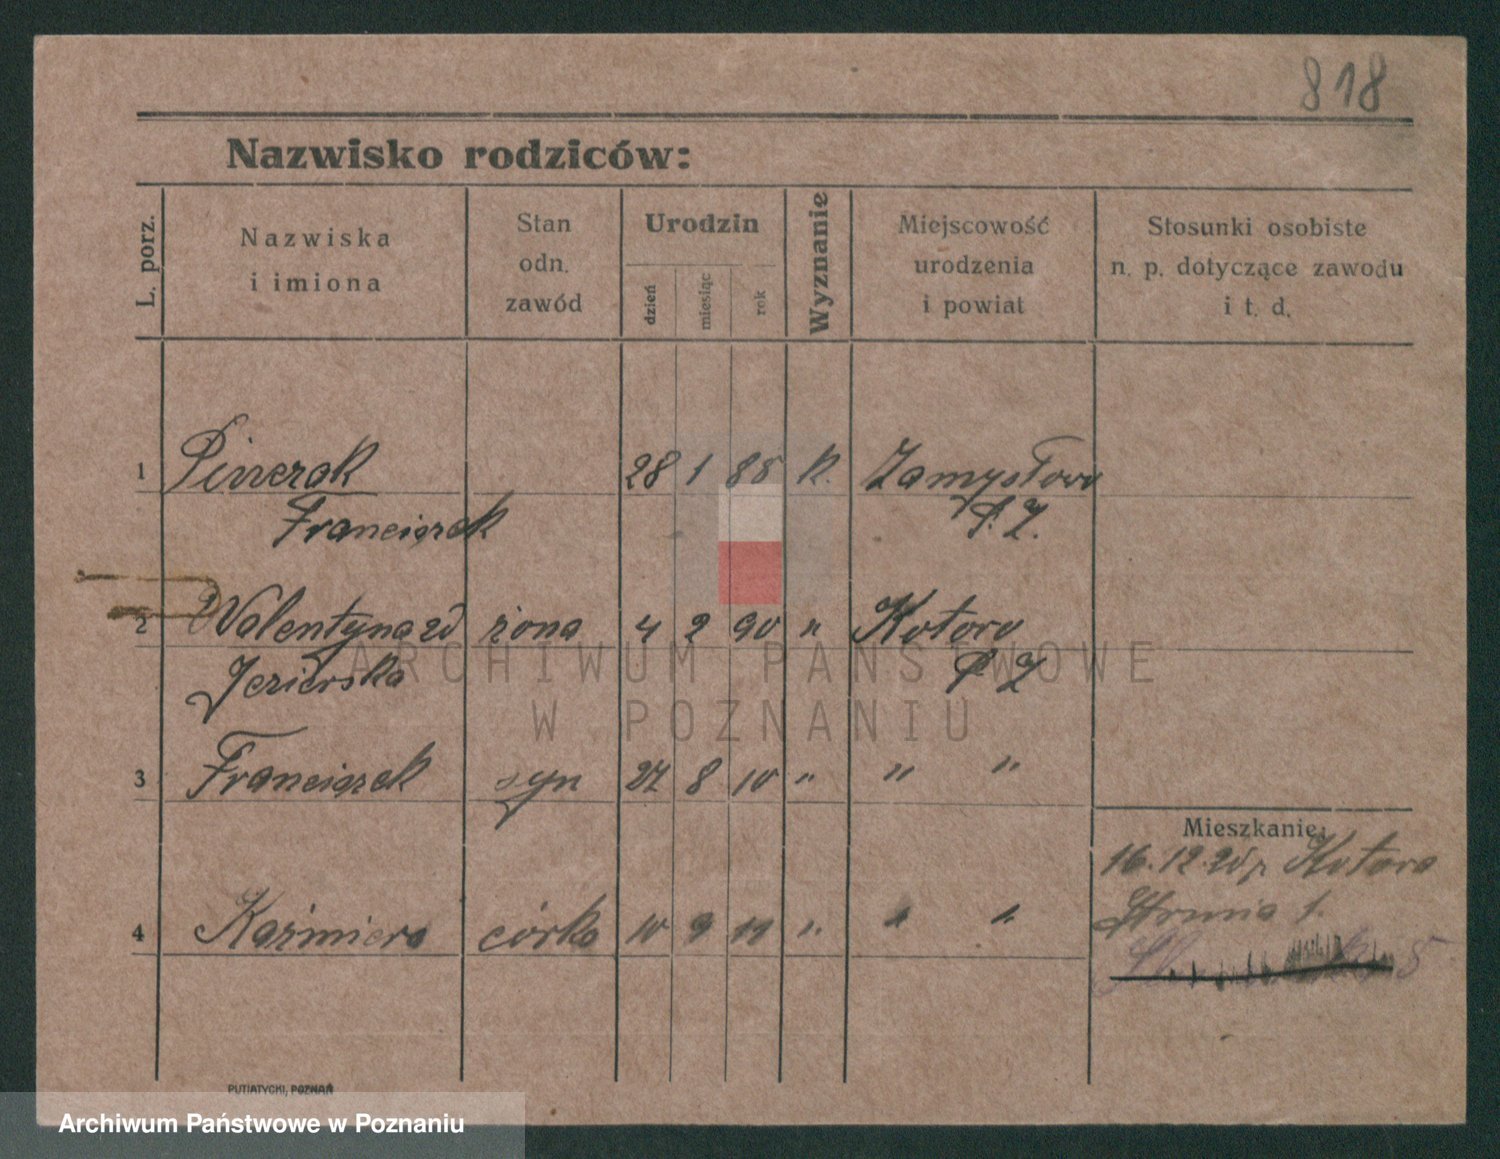 818
Nazwisko rodziców:
L. porz.
Nazwiska
i imiona
Stan
odn.
zawód
Urodzin
dzień
miesiąc
rok
Wyznanie
Miejscowość
urodzenia
i powiat
Stosunki osobiste
n. p. dotyczące zawodu
i t. d.
1 28 1 85 k. Zamysłowo
Franciszek P. Z.
2 Walentyna zd żona 4 2 90 " Kotowo
Jezierska P Z
ARCHIWUM PAŃSTWOWE
W POZNANIU
3 Franciszek syn 27 8 10 " " "
Mieszkanie:
16.12.20 Kotowo
4 Kazimiera córka 10 9 19 " " "
1.
5
PUTIATYCKI, POZNAŃ
Archiwum Państwowe w Poznaniu